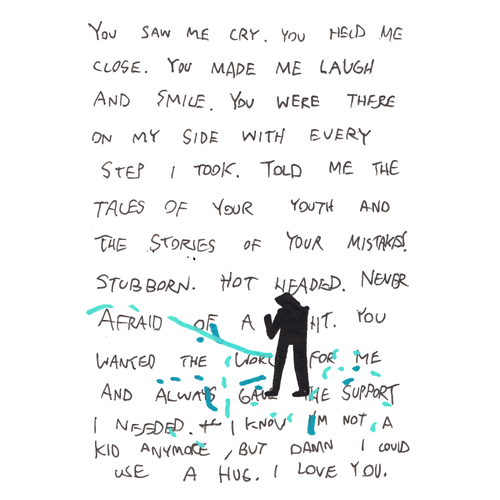 YOU SAW ME CRY. YOU HELD ME
CLOSE. YOU MADE ME LAUGH
AND SMILE. YOU WERE THERE
ON MY SIDE WITH EVERY
STEP I TOOK. TOLD ME THE
TALES OF YOUR YOUTH AND
THE STORIES OF YOUR MISTAKES.
STUBBORN. HOT HEADED. NEVER
AFRAID OF A YOU
WANTED THE WORLD FOR ME
AND ALWAYS GAVE THE SUPPORT
I NEEDED. I KNOW I'M NOT A
KID ANYMORE, BUT DAMN I COULD
USE A HUG. I LOVE YOU.